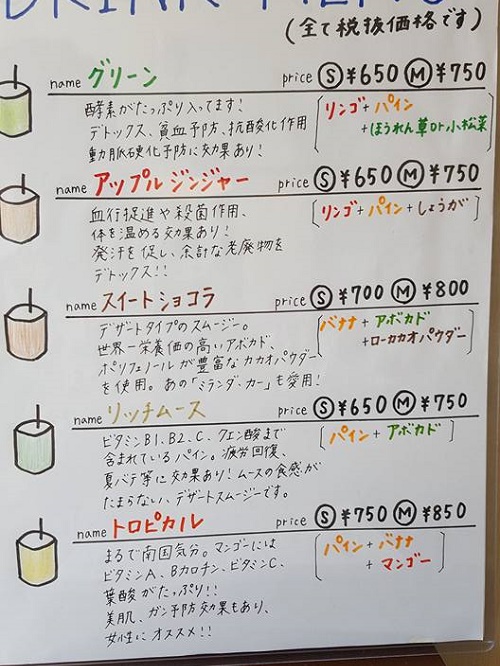 DRINK MENU
(全て税抜価格です)
name グリーン price Ⓢ¥650 Ⓜ¥750
酵素がたっぷり入ってます!
デトックス、貧血予防、抗酸化作用
動脈硬化予防に効果あり!
リンゴ+パイン
+ほうれん草or小松菜
name アップルジンジャー price Ⓢ¥650 Ⓜ¥750
血行促進や殺菌作用、
体を温める効果あり!
発汗を促し、余計な老廃物を
デトックス!!
リンゴ+パイン+しょうが
name スイートショコラ price Ⓢ¥700 Ⓜ¥800
デザートタイプのスムージー。
世界一栄養価の高いアボカド、
ポリフェノールが豊富なカカオパウダー
を使用。あの「ミランダ・カー」も愛用!
バナナ+アボカド
+ローカカオパウダー
name リッチムース price Ⓢ¥650 Ⓜ¥750
ビタミンB1、B2、C、クエン酸まで
含まれているパイン。疲労回復、
夏バテ等に効果あり!ムースの食感が
たまらない、デザートスムージーです。
パイン+アボカド
name トロピカル price Ⓢ¥750 Ⓜ¥850
まるで南国気分。マンゴーには
ビタミンA、Bカロチン、ビタミンC、
葉酸がたっぷり!!
美肌、ガン予防効果もあり、
女性にオススメ!!
パイン+バナナ
+マンゴー